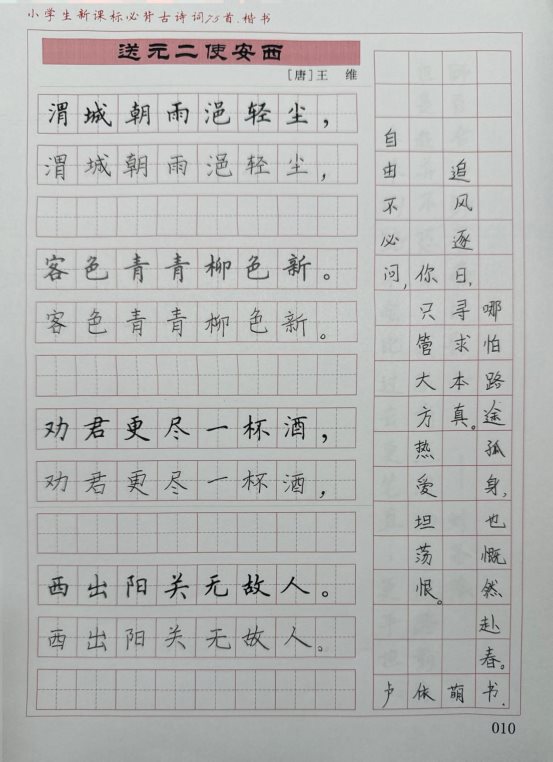 小学生新课标必背古诗词75首.楷书
送元二使安西
［唐］王 维
渭城朝雨浥轻尘，
渭城朝雨浥轻尘，
客色青青柳色新。
客色青青柳色新。
劝君更尽一杯酒，
劝君更尽一杯酒，
西出阳关无故人。
西出阳关无故人。
自由不必问，
你只管大方热爱坦荡恨。
追风逐日，寻求本真。
哪怕路途孤身，也慨然赴春。
卢依萌书.
010